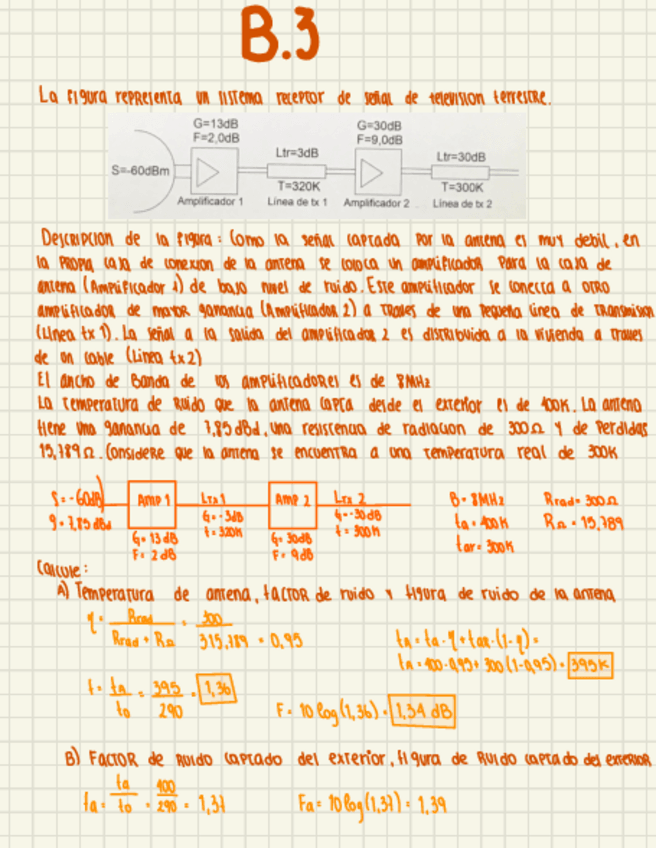 B.3
La figura representa un sistema receptor de señal de television terrestre.
G=13dB
F=2,0dB
G=30dB
F=9,0dB
Ltr=3dB
Ltr=30dB
S=-60dBm
T=320K
T=300K
Amplificador 1
Línea de tx 1
Amplificador 2
Línea de tx 2
Descripcion de la figura: Como la señal captada por la antena es muy debil, en
la propia caja de conexion de la antena se coloca un amplificador para la caja de
antena (Amplificador 1) de bajo nivel de ruido. Este amplificador se conecta a otro
amplificador de mayor ganancia (Amplificador 2) a traves de una pequeña linea de transmision
(Linea tx 1). La señal a la salida del amplificador 2 es distribuida a la vivienda a traves
de un cable (Linea tx2)
El ancho de Banda de los amplificadores es de 8MHz
La temperatura de Ruido que la antena capta desde el exterior es de 400K. La antena
tiene una ganancia de 7,85 dBd, una resistencia de radiacion de 300Ω y de perdidas
15,789 Ω. Considere que la antena se encuentra a una temperatura real de 300K
S=-60dB
g=7,85 dBd
Amp 1
G=13 dB
F=2 dB
Ltx1
G=-3dB
t=320K
Amp 2
G=30dB
F=9dB
Ltx 2
G=-30dB
t=300K
B=8MHz
ta=400K
tar=300K
Rrad=300Ω
RΩ=15,789
Calcule:
A) Temperatura de antena, factor de ruido y figura de ruido de la antena
η = Rrad / Rrad + RΩ = 300 / 315,789 = 0,95
tA = ta·η + tar·(1-η) =
tA = 400·0,95 + 300(1-0,95) = 395K
f = tA / to = 395 / 290 = 1,36
F = 10 log(1,36) = 1,34 dB
B) Factor de Ruido captado del exterior, figura de Ruido captado del exterior
fa = ta / to = 400 / 290 = 1,37
Fa = 10 log(1,37) = 1,39